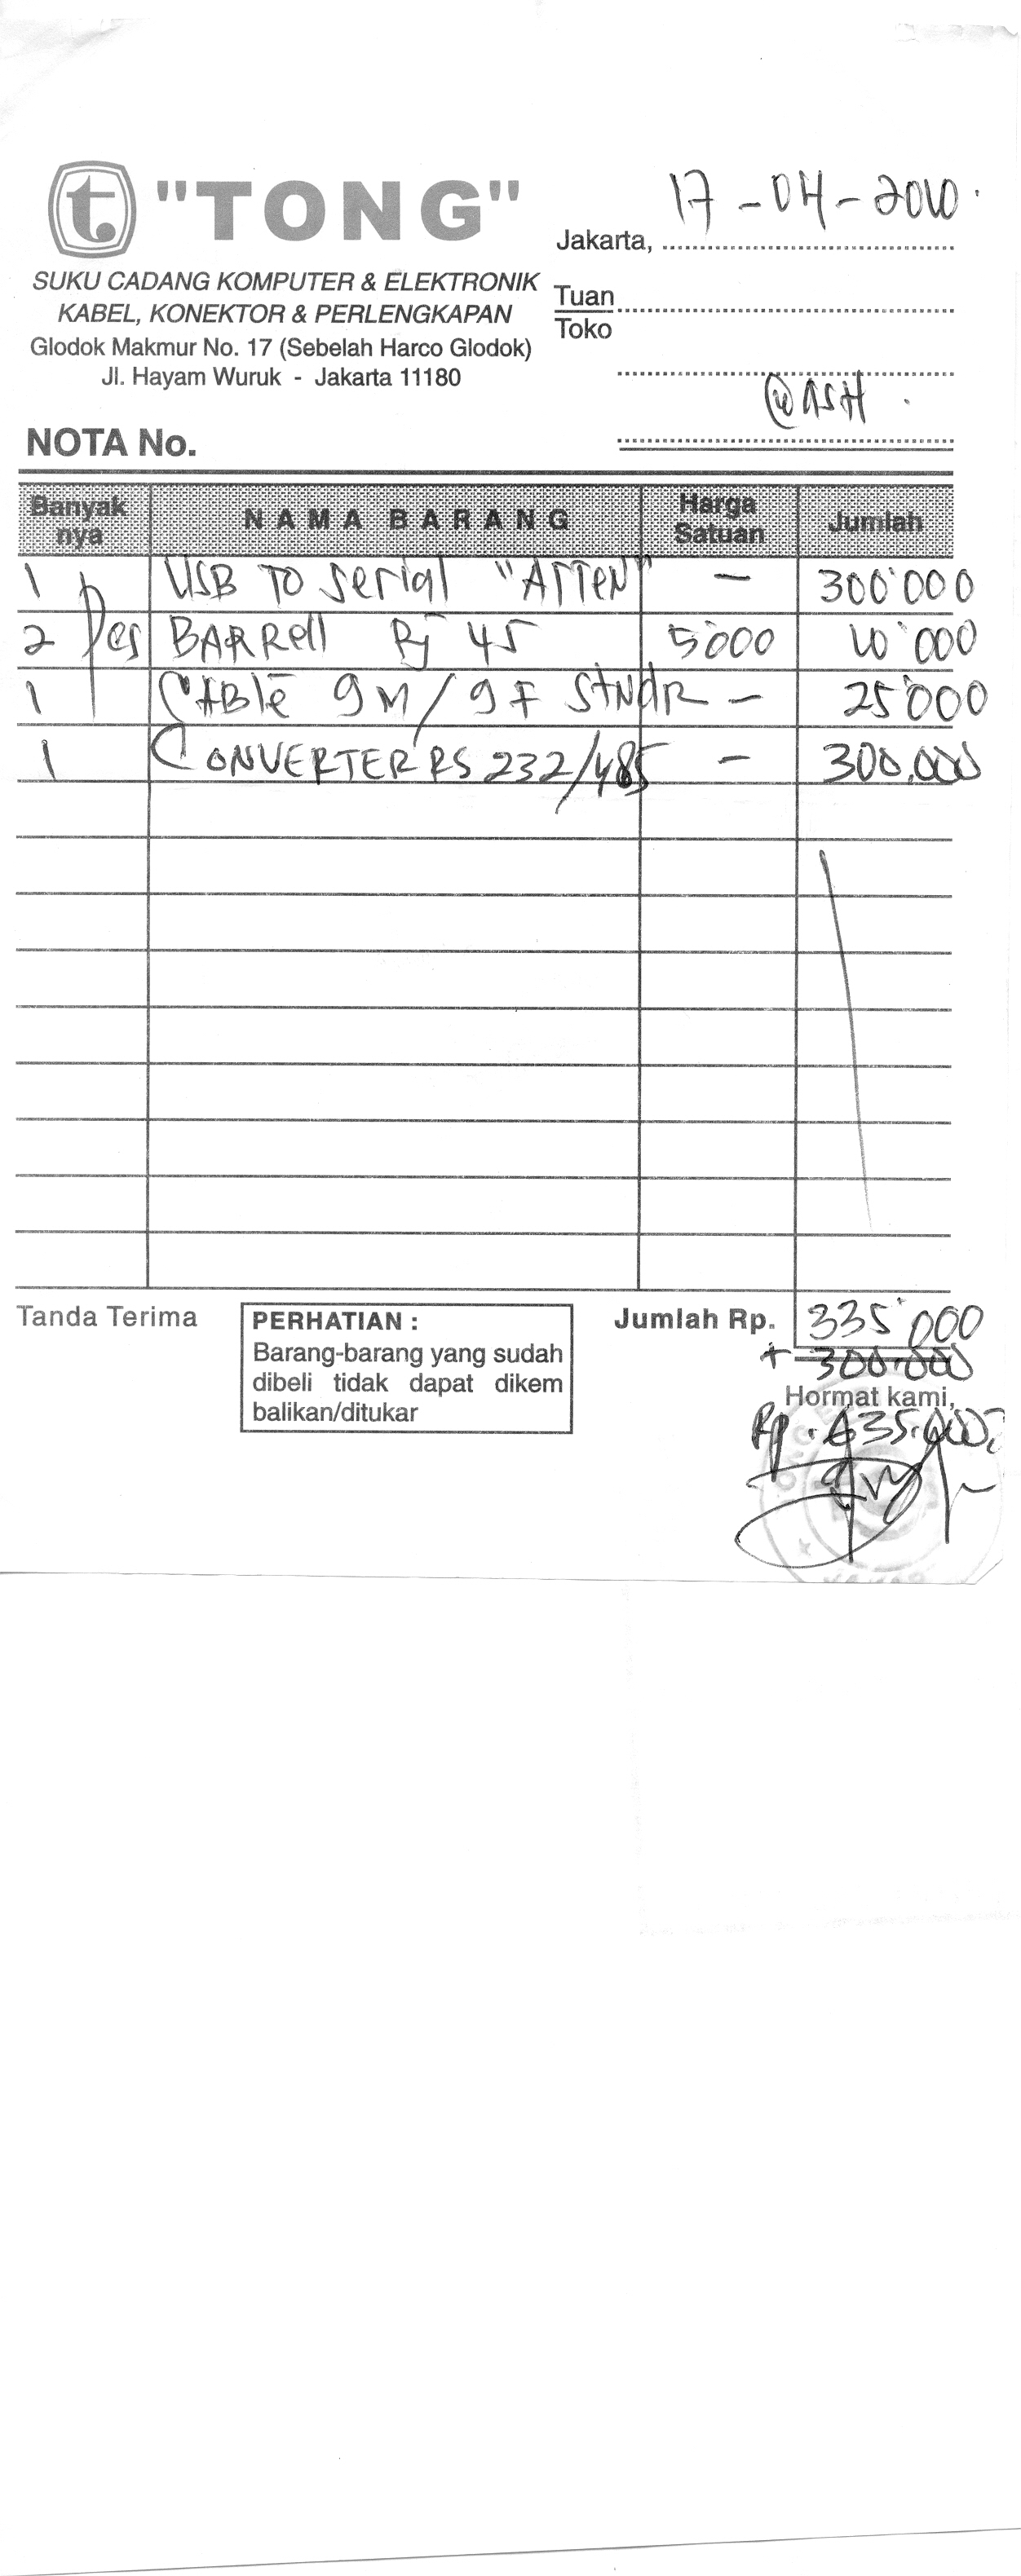 t "TONG"
SUKU CADANG KOMPUTER & ELEKTRONIK
KABEL, KONEKTOR & PERLENGKAPAN
Glodok Makmur No. 17 (Sebelah Harco Glodok)
Jl. Hayam Wuruk - Jakarta 11180
Jakarta, 17-04-2010.
Tuan
Toko
CASH.
NOTA No.
Banyak nya NAMA BARANG Harga Satuan Jumlah
1 USB TO Serial "ATTEN" - 300'000
2 Pcs BARRell Rj 45 5'000 10'000
1 CABle 9M/9F STNdR - 25'000
1 CONVERTER RS 232/485 - 300.000
Tanda Terima
PERHATIAN :
Barang-barang yang sudah
dibeli tidak dapat dikem
balikan/ditukar
Jumlah Rp. 335'000
+ 300.000
Hormat kami,
Rp. 635.000,